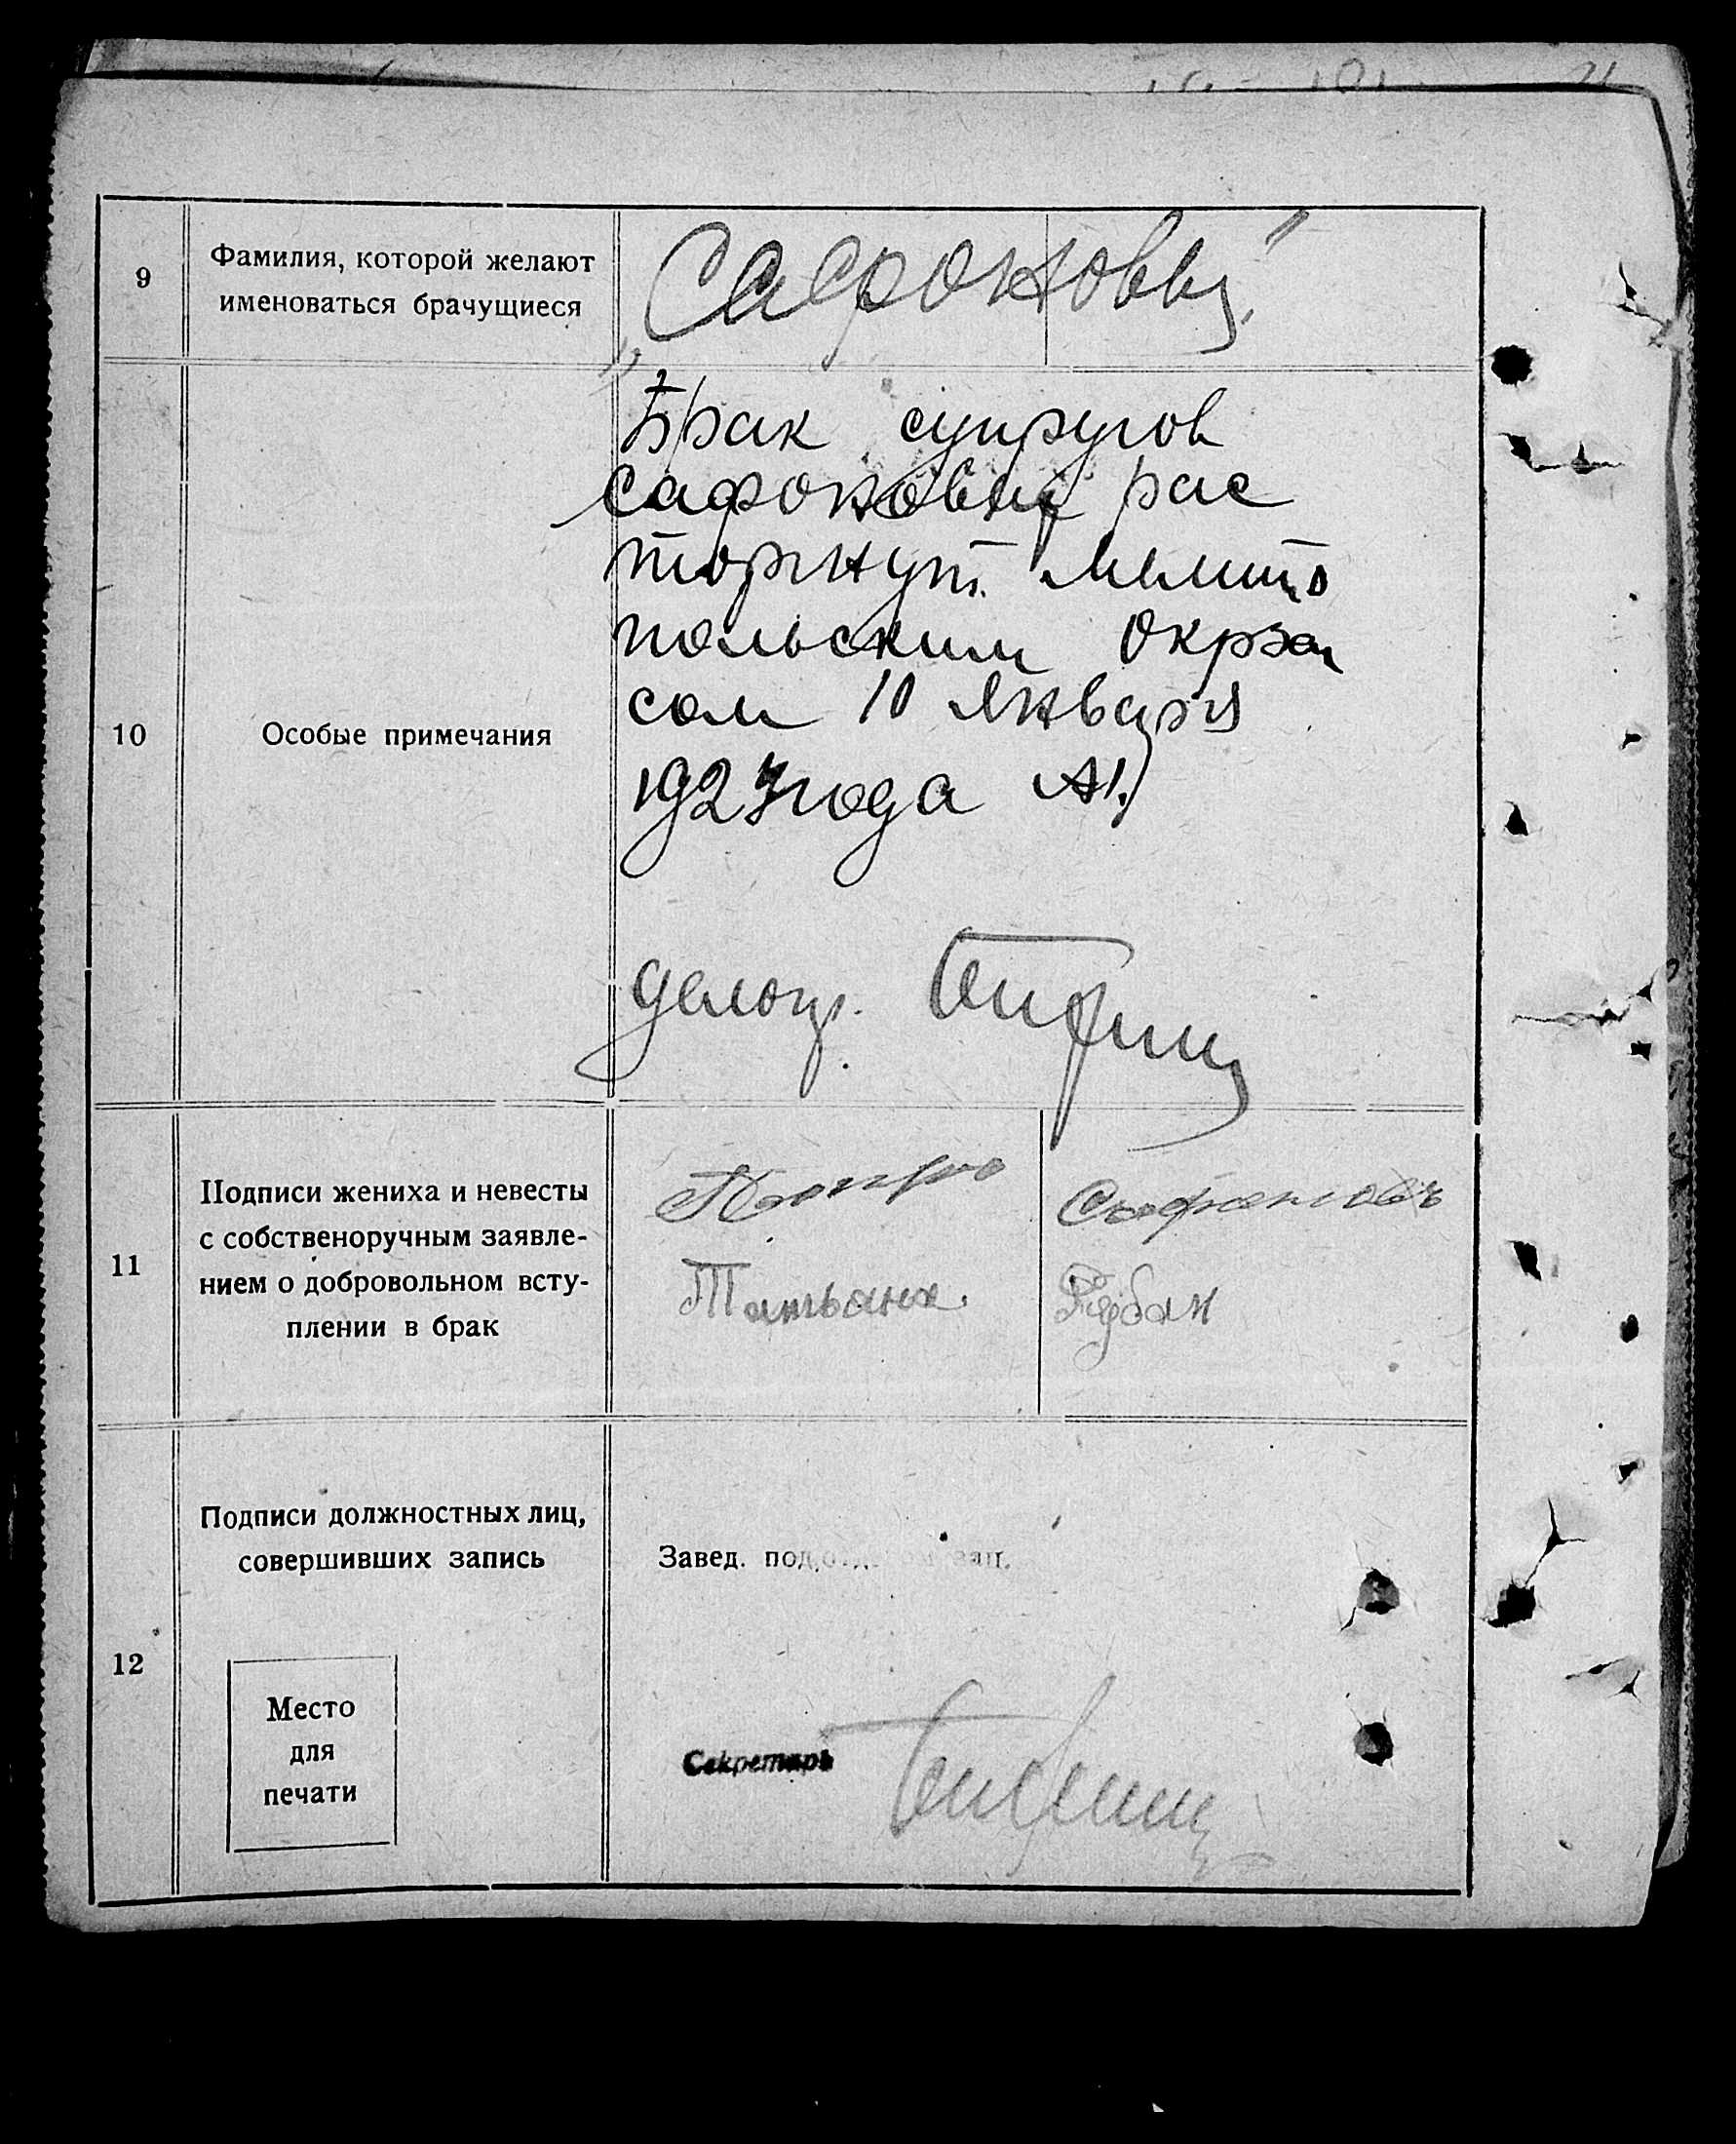 9
Фамилия, которой желают
именоваться брачущиеся
„Сафоновы"
10
Особые примечания
Брак супругов
Сафоновых рас
торгнут Мелито
польским Окрза
сом 10 Января
1927 года
делопр.
11
Подписи жениха и невесты
с собственоручным заявле-
нием о добровольном всту-
плении в брак
Сафоновъ
Татьяна Рубан
12
Подписи должностных лиц,
совершивших запись
Место
для
печати
Завед. зап.
Секретарь